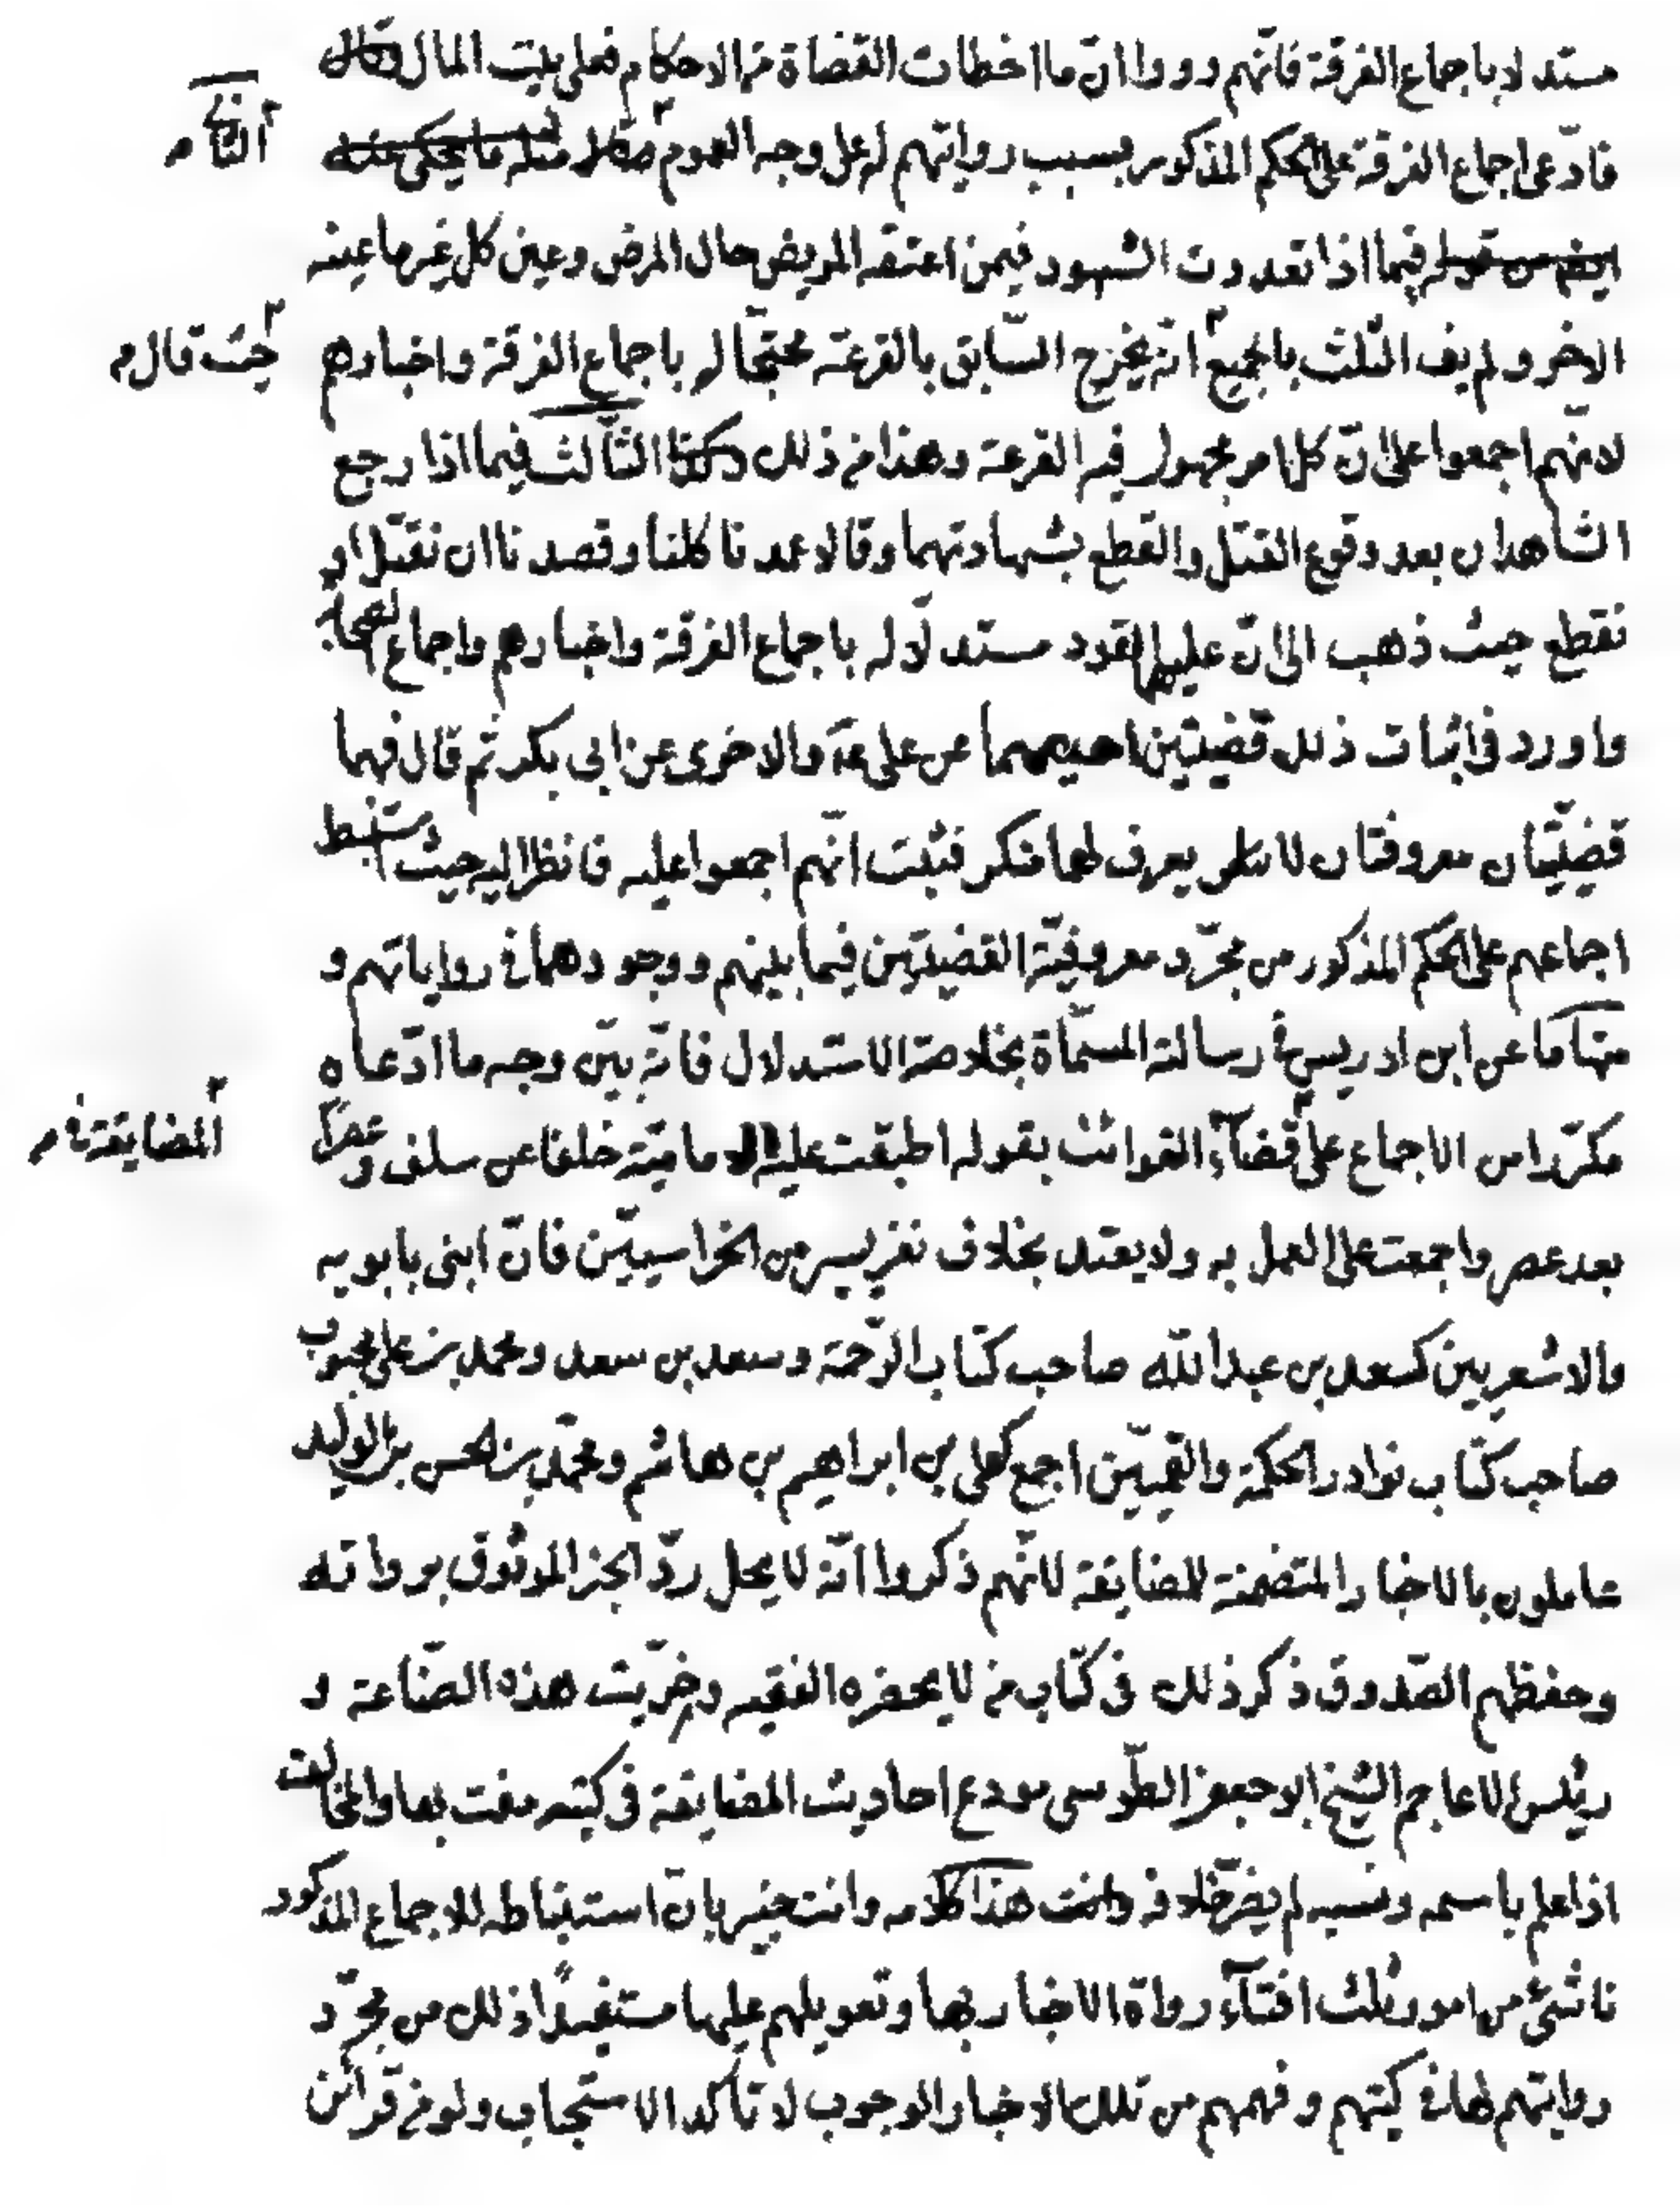 مستدلا باجماع الفرقة فانّهم رووا انّ ما اخطات القضاة من الاحكام فعلى بيت المال
فادّعى اجماع الفرقة على الحكم المذكور بسبب روايتهم له على وجه العموم مثله ما يحكى عنه
الثانى م
فيما اذا تعددت الشهود فيمن اعتقه المريض حال المرض وعين كل غير ما عينه
الاخر ولم يف الثلث بالجميع انّه يخرج السّابق بالقرعة محتجّا له باجماع الفرقة واخبارهم
حيث قال م
لانّهم اجمعوا على انّ كل امر مجهول فيه القرعة وهذا من ذلك وكذا الثّالث فيما اذا رجع
الشاهدان بعد وقوع القتل والقطع بشهادتهما وقالا عمدنا كلنا وقصدنا ان نقتل او
نقطع حيث ذهب الى انّ عليهما القود مستدلّا له باجماع الفرقة واخبارهم واجماع الصحابة
واورد فى اثبات ذلك قضيتين احديهما عن على عه والاخرى عن ابى بكر ثم قال فهما
قضيّتان معروفتان لا يعرف لهما منكر فثبت انّهم اجمعوا عليه فانظر اليه حيث استنبط
اجماعهم على الحكم المذكور من مجرّد معروفيّة القضيّتين فيما بينهم ووجودهما فى رواياتهم و
منها ما عن ابن ادريس فى رسالته المسمّاة بخلاصة الاستدلال فانّه بيّن وجه ما ادّعاه
مكرّرا من الاجماع على قضآء الفوائت بقوله اطبقت عليه الامامية خلفا عن سلف وعصرا
المضايقة فى م
بعد عصر واجمعت على العمل به ولا يعتد بخلاف نفر يسير من الخراسيّين فانّ ابنى بابويه
والاشعريين كسعد بن عبد الله صاحب كتاب الرّحمة وسعد بن سعد ومحمد بن على محبوب
صاحب كتاب نوادر الحكمة والقميّين اجمع كعلى بن ابراهيم بن هاشم ومحمّد بن الحسن بن الوليد
عاملون بالاخبار المتضمنة للمضايقة لانّهم ذكروا انّه لا يحل ردّ الخبر الموثوق برواته
وحفظهم الصّدوق ذكر ذلك فى كتاب من لا يحضره الفقيه وخرّيت هذه الصّناعة و
رئيس الاعاجم الشيخ ابو جعفر الطّوسى مودع احاديث المضايقة فى كتبه مفت بها والمخالف
اذا علم باسمه ونسبه لم يضرّ خلافه هذا كلامه وانت خبير بانّ استنباطه للاجماع المذكور
ناشئ من امور ثلث افتآء رواة الاخبار بها وتعويلهم عليها مستفيدًا ذلك من مجرّد
روايتهم لها فى كتبهم وفهمهم من تلك الاخبار الوجوب لا تاكد الاستحباب ولو من قرائن